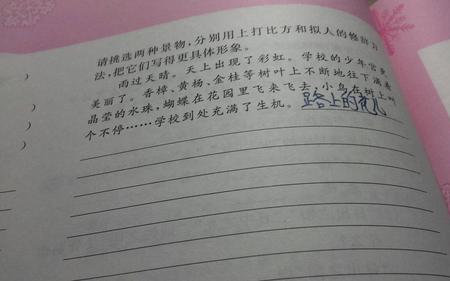 请挑选两种景物,分别用上打比方和拟人的修辞方
法,把它们写得更具体形象。
雨过天晴。天上出现了彩虹。学校的少年宫更
美丽了。香樟、黄杨、金桂等树叶上不断地往下滴着
晶莹的水珠,蝴蝶在花园里飞来飞去,小鸟在树上叫
个不停……学校到处充满了生机。路上的花儿
)
)
)